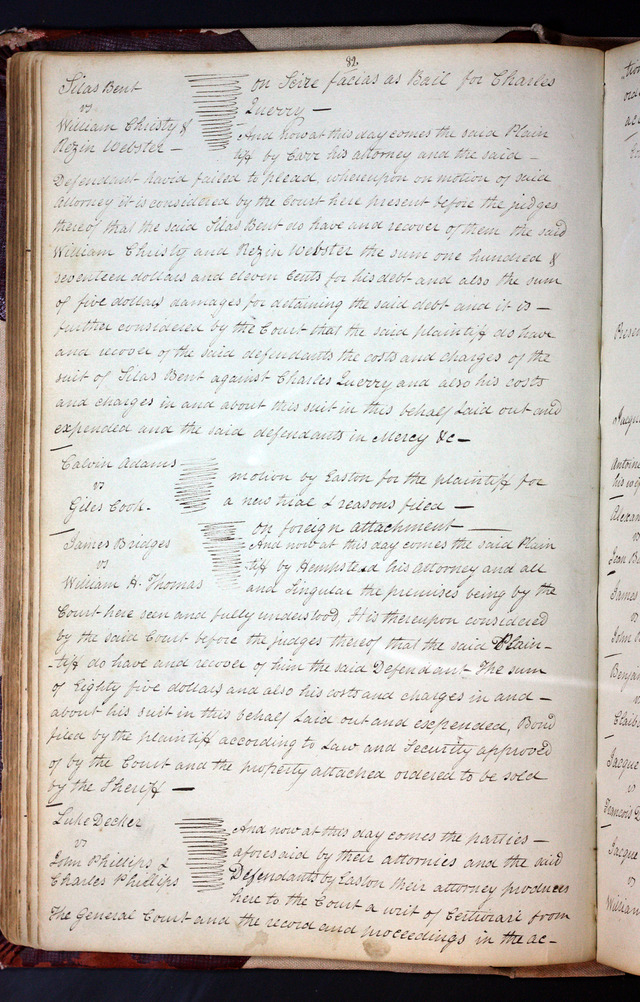 82.
Silas Bent
vs
William Christy &
Rezin Webster —
on Scire facias as Bail for Charles
Querry —
And now at this day comes the said Plain
tiff by Carr his attorney and the said —
Defendant havid failed to plead. whereupon on motion of said
Attorney it is considered by the Court here present before the judges
thereof that the said Silas Bent do have and recover of them the said
William Christy and Rezin Webster the sum one hundred &
seventeen dollars and eleven Cents for his debt and also the sum
of five dollars damages for detaining the said debt and it is —
further considered by the Court that the said plaintiff do have
and recover of the said defendants the costs and charges of the
suit of Silas Bent against Charles Querry and also his costs
and charges in and about this suit in this behalf Laid out and
expended and the said defendants in Mercy &c —
Calvin Adams
vs
Giles Cook.
motion by Easton for the plaintiff for
a new trial & reasons filed —
James Bridges
vs
William H. Thomas
on foreign attachment —
And now at this day comes the said Plain
tiff by Hempstead his attorney and all
and Singular the premises being by the
Court here seen and fully understood, It is thereupon considered
by the said Court before the judges thereof that the said Plain-
-tiff do have and recover of him the said Defendant The sum
of Eighty five dollars and also his costs and charges in and —
about his suit in this behalf Laid out and expended, Bond
filed by the plaintiff according to Law and Security approved
of by the Court and the property attached ordered to be sold
by the Sheriff —
Luke Decker
vs
John Phillips &
Charles Phillips
And now at this day comes the parties —
aforesaid by their attornies and the said
Defendants by Easton their attorney produces
here to the Court a writ of Certiorari from
The General Court and the record and proceedings in the ac-
Presen
Antoine
his wif
Alexan
vs
Jean B
James
vs
John
Benja
Claib
Jacque
vs
François
Jacque
vs
William